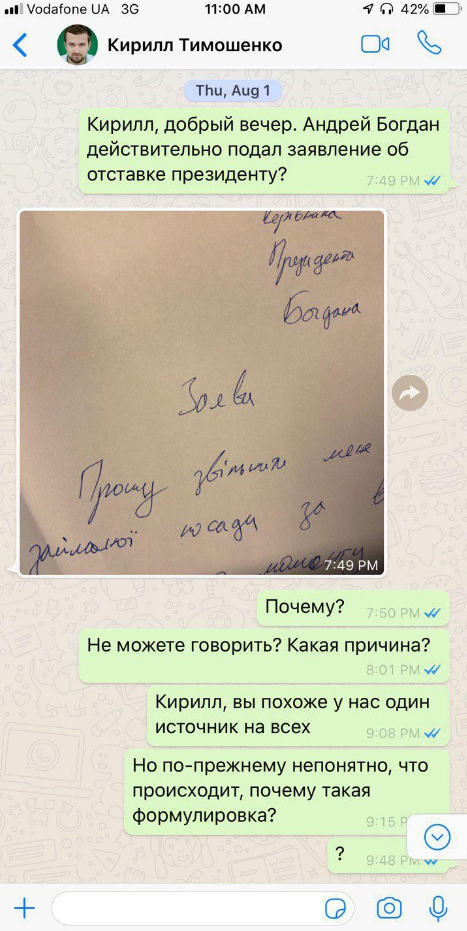 Vodafone UA 3G 11:00 AM 42%
Кирилл Тимошенко
Thu, Aug 1
Кирилл, добрый вечер. Андрей Богдан
действительно подал заявление об
отставке президенту?
7:49 PM
Керівника
Президента
Богдана
Заява
Прошу звільнити мене
займаної посади за
7:49 PM
Почему?
7:50 PM
Не можете говорить? Какая причина?
8:01 PM
Кирилл, вы похоже у нас один
источник на всех
9:08 PM
Но по-прежнему непонятно, что
происходит, почему такая
формулировка?
9:15 P
?
9:48 PM